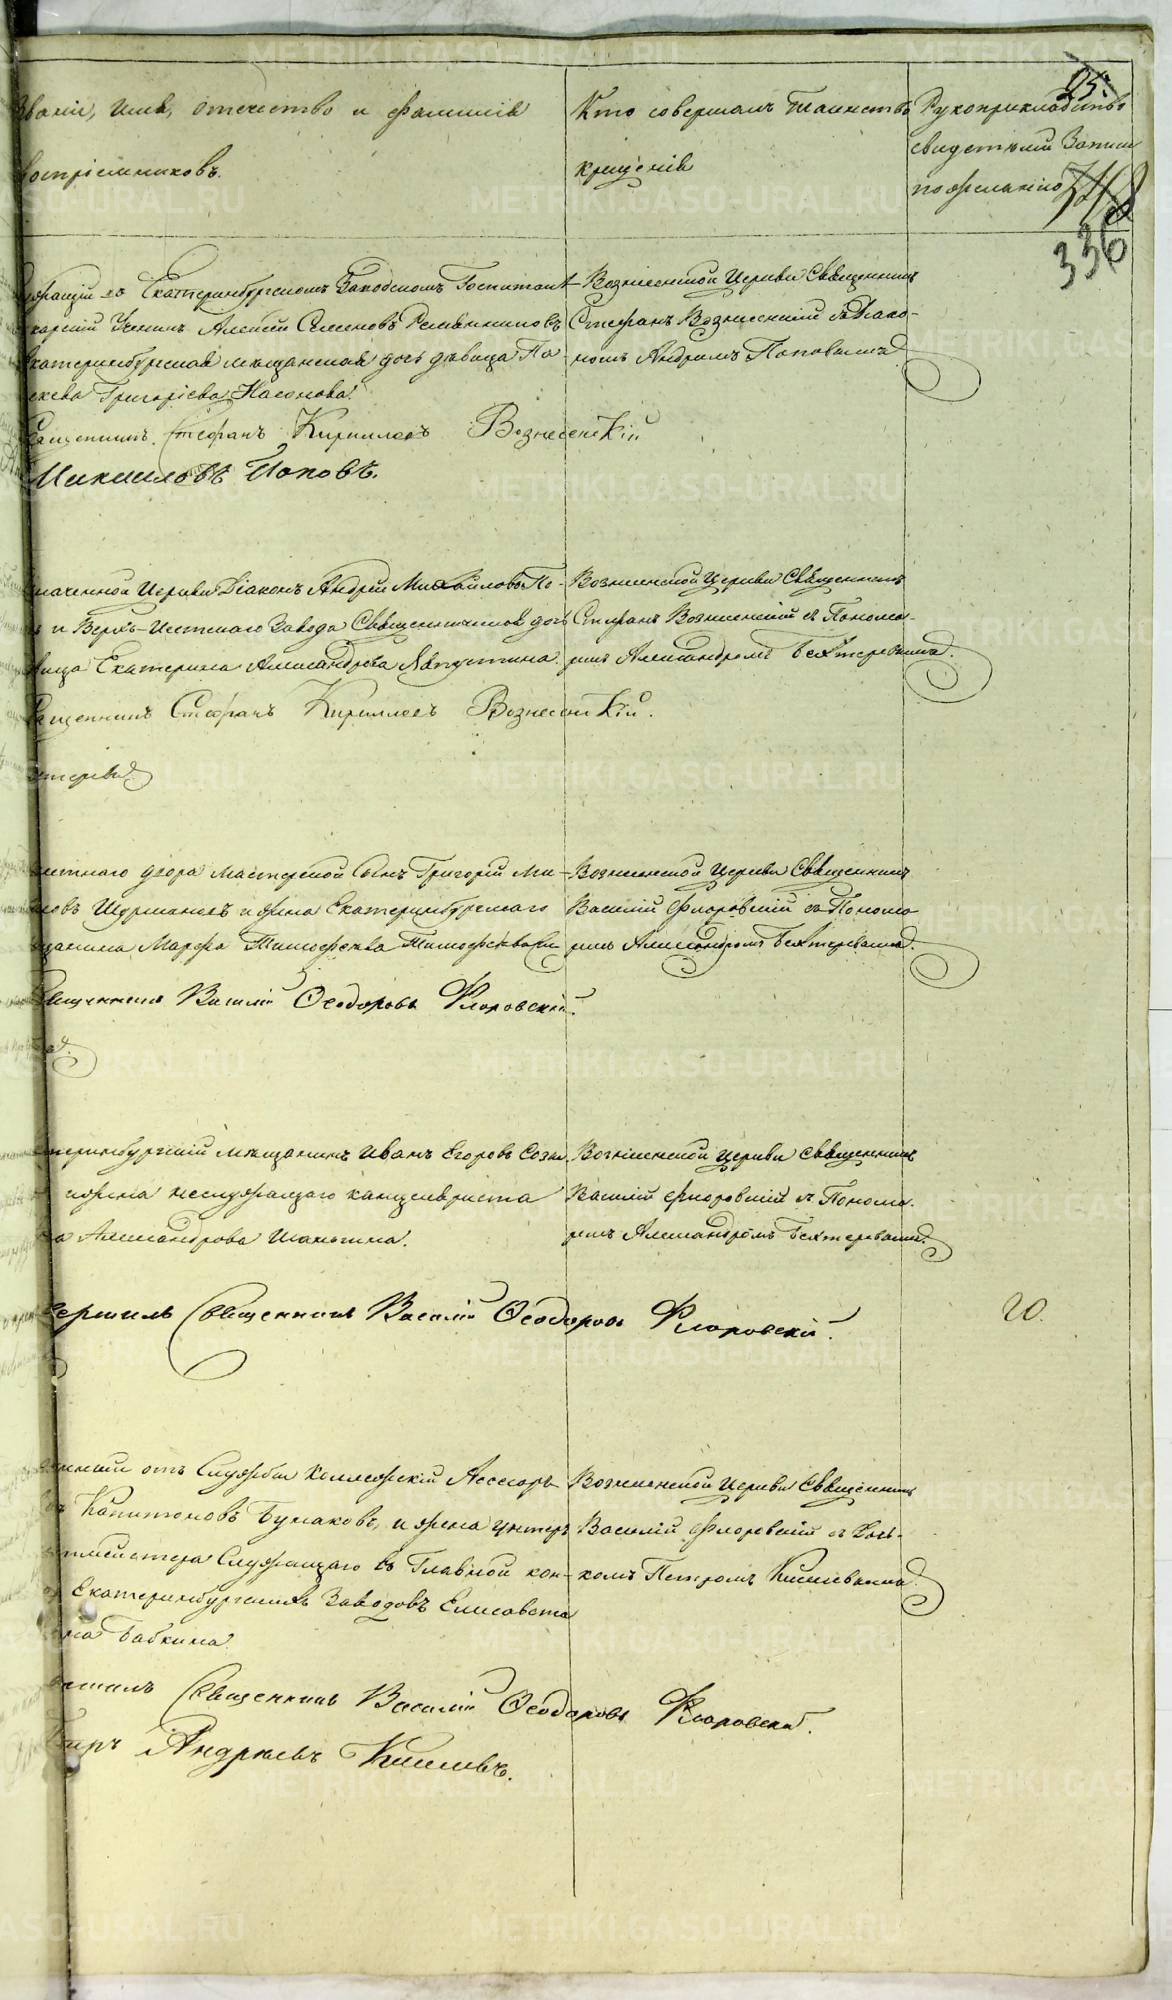 25.
Званіе, имя, отчество и фамилія
воспріемниковъ.
Кто совершалъ таинство
крещенія
Рукоприкладство
свидетелей записи
по желанію
336
Служащій въ Екатеринбургскомъ Заводскомъ Госпитал
карскій Ученикъ Алексей Семеновъ
Екатеринбургская мѣщанская дочь дѣвица Па-
Григоріева Насонова.
Вознесенской Церкви Священникъ
Стефанъ Вознесенский съ Діако-
номъ Андреемъ Поповымъ
Священникъ Стефанъ Кирилловъ Вознесенскій
Михаиловъ Поповъ.
означенной Церкви Діаконъ Андрей Михайловъ По-
и Верхъ-Исетскаго Завода Священническая дочь
вица Екатерина Александрова
Вознесенской Церкви Священникъ
Стефанъ Вознесенскій съ Понома-
ремъ Александромъ Бехтеревымъ.
Священникъ Стефанъ Кирилловъ Вознесенскій.
хтеревъ
нетнаго двора Мастерской сынъ Григорій Ми-
ловъ и жена Екатеринбургскаго
щанина Марфа Тимофеева
Вознесенской Церкви Священникъ
Василій Флоровскій съ Понома
ремъ Александромъ Бехтеревымъ.
Священникъ Василій Ѳеодоровъ Флоровскій.
теринбургскій мѣщанинъ Иванъ Егоровъ
и жена неслужащаго канцеляриста
Александрова
Вознесенской Церкви Священникъ
Василій Флоровскій съ Понома-
ремъ Александромъ Бехтеревымъ.
вершилъ Священникъ Василій Ѳеодоровъ Флоровскій.
20.
отъ Службы Коллежскій Ассесоръ
Капитоновъ Бумаковъ, и жена унтеръ
шихтмейстера Служащаго въ Главной кон-
Екатеринбургскихъ Заводовъ Елисавета
Бабкина.
Вознесенской Церкви Священникъ
Василій Флоровскій съ Дьяч-
комъ Петромъ Киселевымъ.
Священникъ Василій Ѳеодоровъ Флоровскій.
Андреевъ Киселевъ.
METRIKI.GASO-URAL.RU